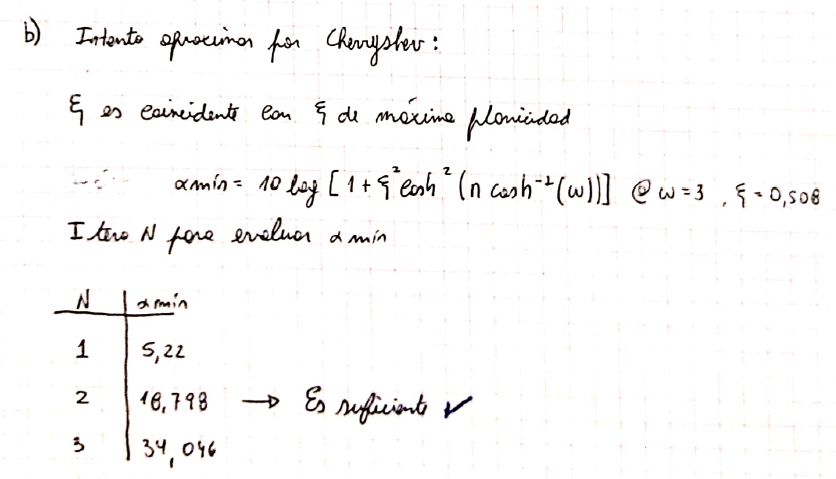 b) Intento aproximar por Chevyshev:
ξ es coincidente con ξ de máxima planicidad
α mín = 10 log [1 + ξ² cosh² (n cosh⁻¹(ω))] @ ω = 3 , ξ = 0,508
Itero N para evaluar α mín
N | α mín
1 | 5,22
2 | 18,798 → Es suficiente ✓
3 | 34,046